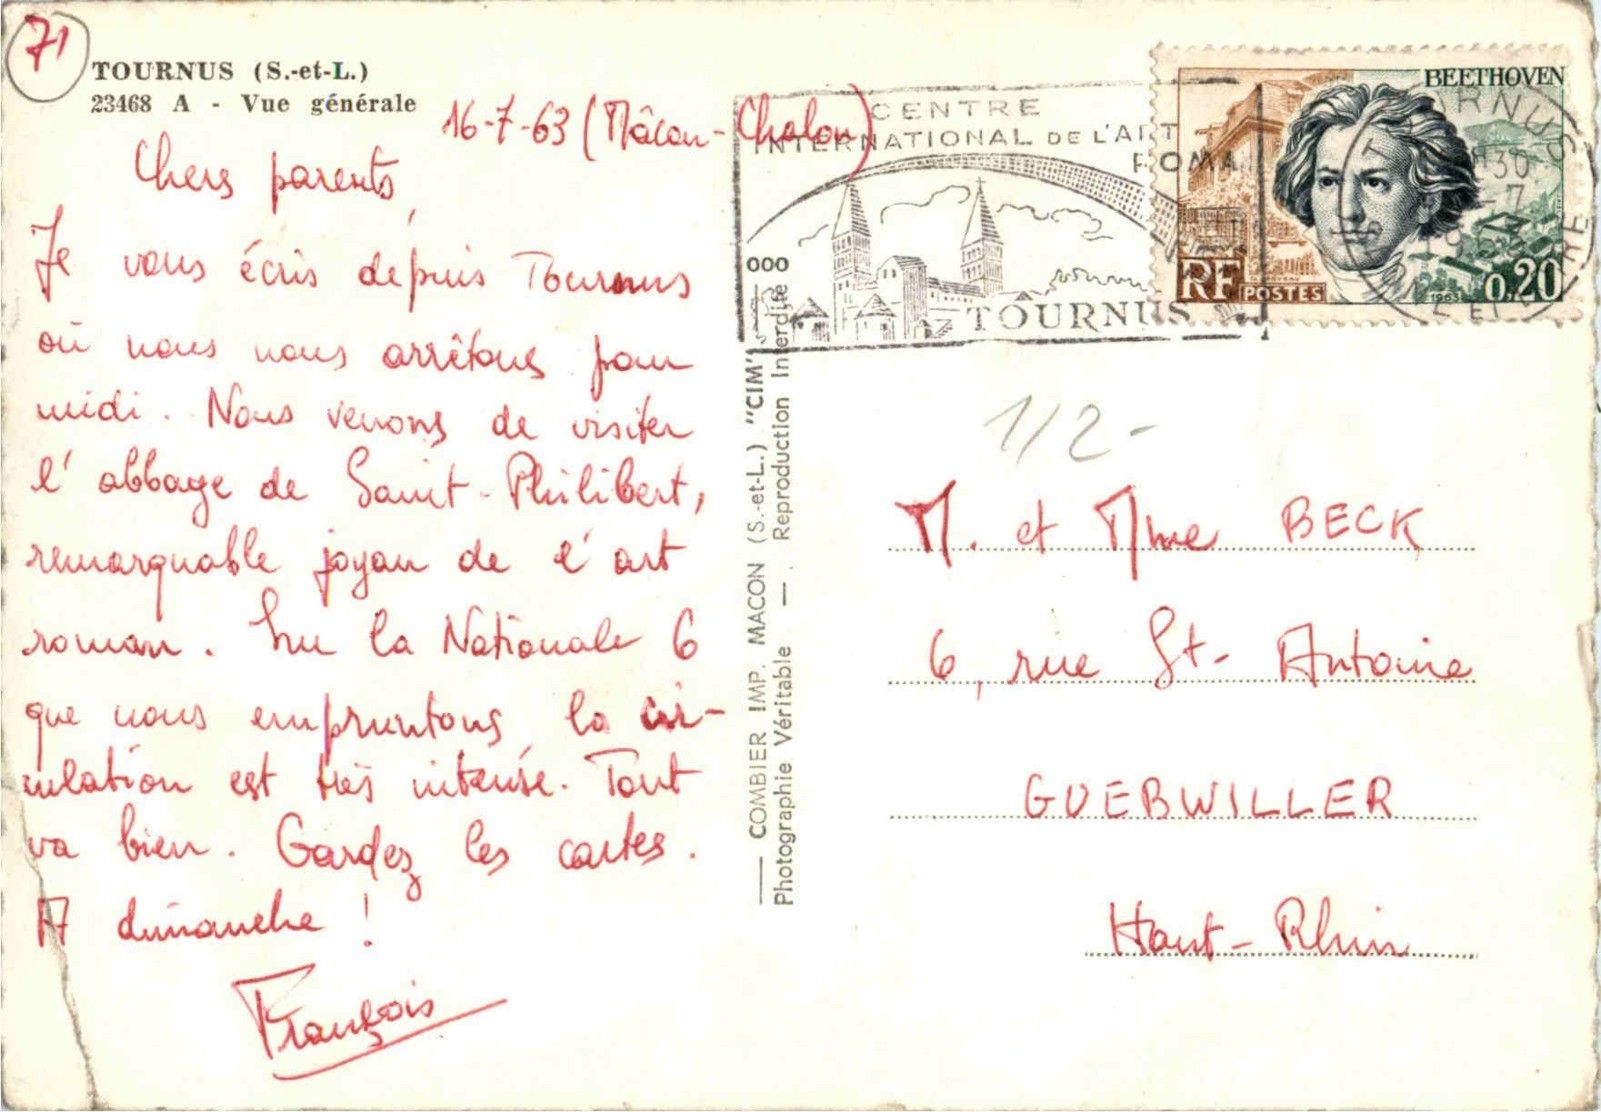 71
TOURNUS (S.-et-L.)
23468 A - Vue générale
16-7-63 (Mâcon-Chalon)
Chers parents,
Je vous écris depuis Tournus
où nous nous arrêtons pour
midi. Nous venons de visiter
l'abbaye de Saint-Philibert,
remarquable joyau de l'art
roman. Sur la Nationale 6
que nous empruntons la cir-
culation est très intense. Tout
va bien. Gardez les cartes.
A dimanche !
François
COMBIER IMP. MACON (S.-et-L.) "CIM"
Photographie Véritable — Reproduction Interdite
000
CENTRE
INTERNATIONAL DE L'ART
ROMAN
TOURNUS
BEETHOVEN
RF POSTES
1963
0,20
TOURNUS
30
-7
1963
SAONE ET LOIRE
1/2-
M. et Mme BECK
6, rue St-Antoine
GUEBWILLER
Haut-Rhin